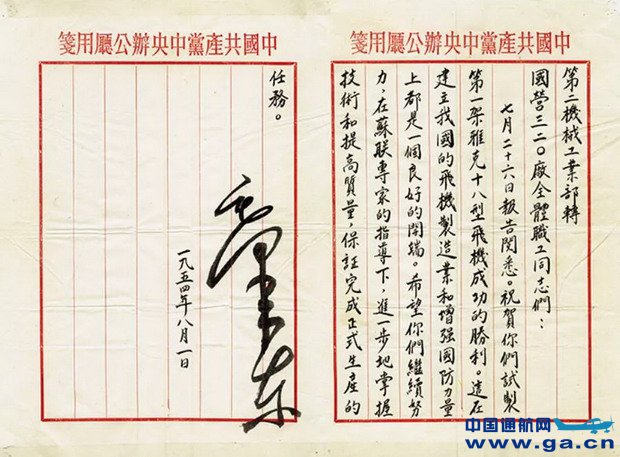 中國共產黨中央辦公廳用箋
第二機械工業部轉
國營三二〇廠全體職工同志們：
七月二十六日報告閱悉。祝賀你們試製
第一架雅克十八型飛機成功的勝利。這在
建立我國的飛機製造業和增强國防力量
上都是一個良好的開端。希望你們繼續努
力，在蘇联專家的指導下，進一步地掌握
技術和提高質量，保証完成正式生產的
中國共產黨中央辦公廳用箋
任務。
毛澤东
一九五四年八月一日
中国通航网
www.ga.cn